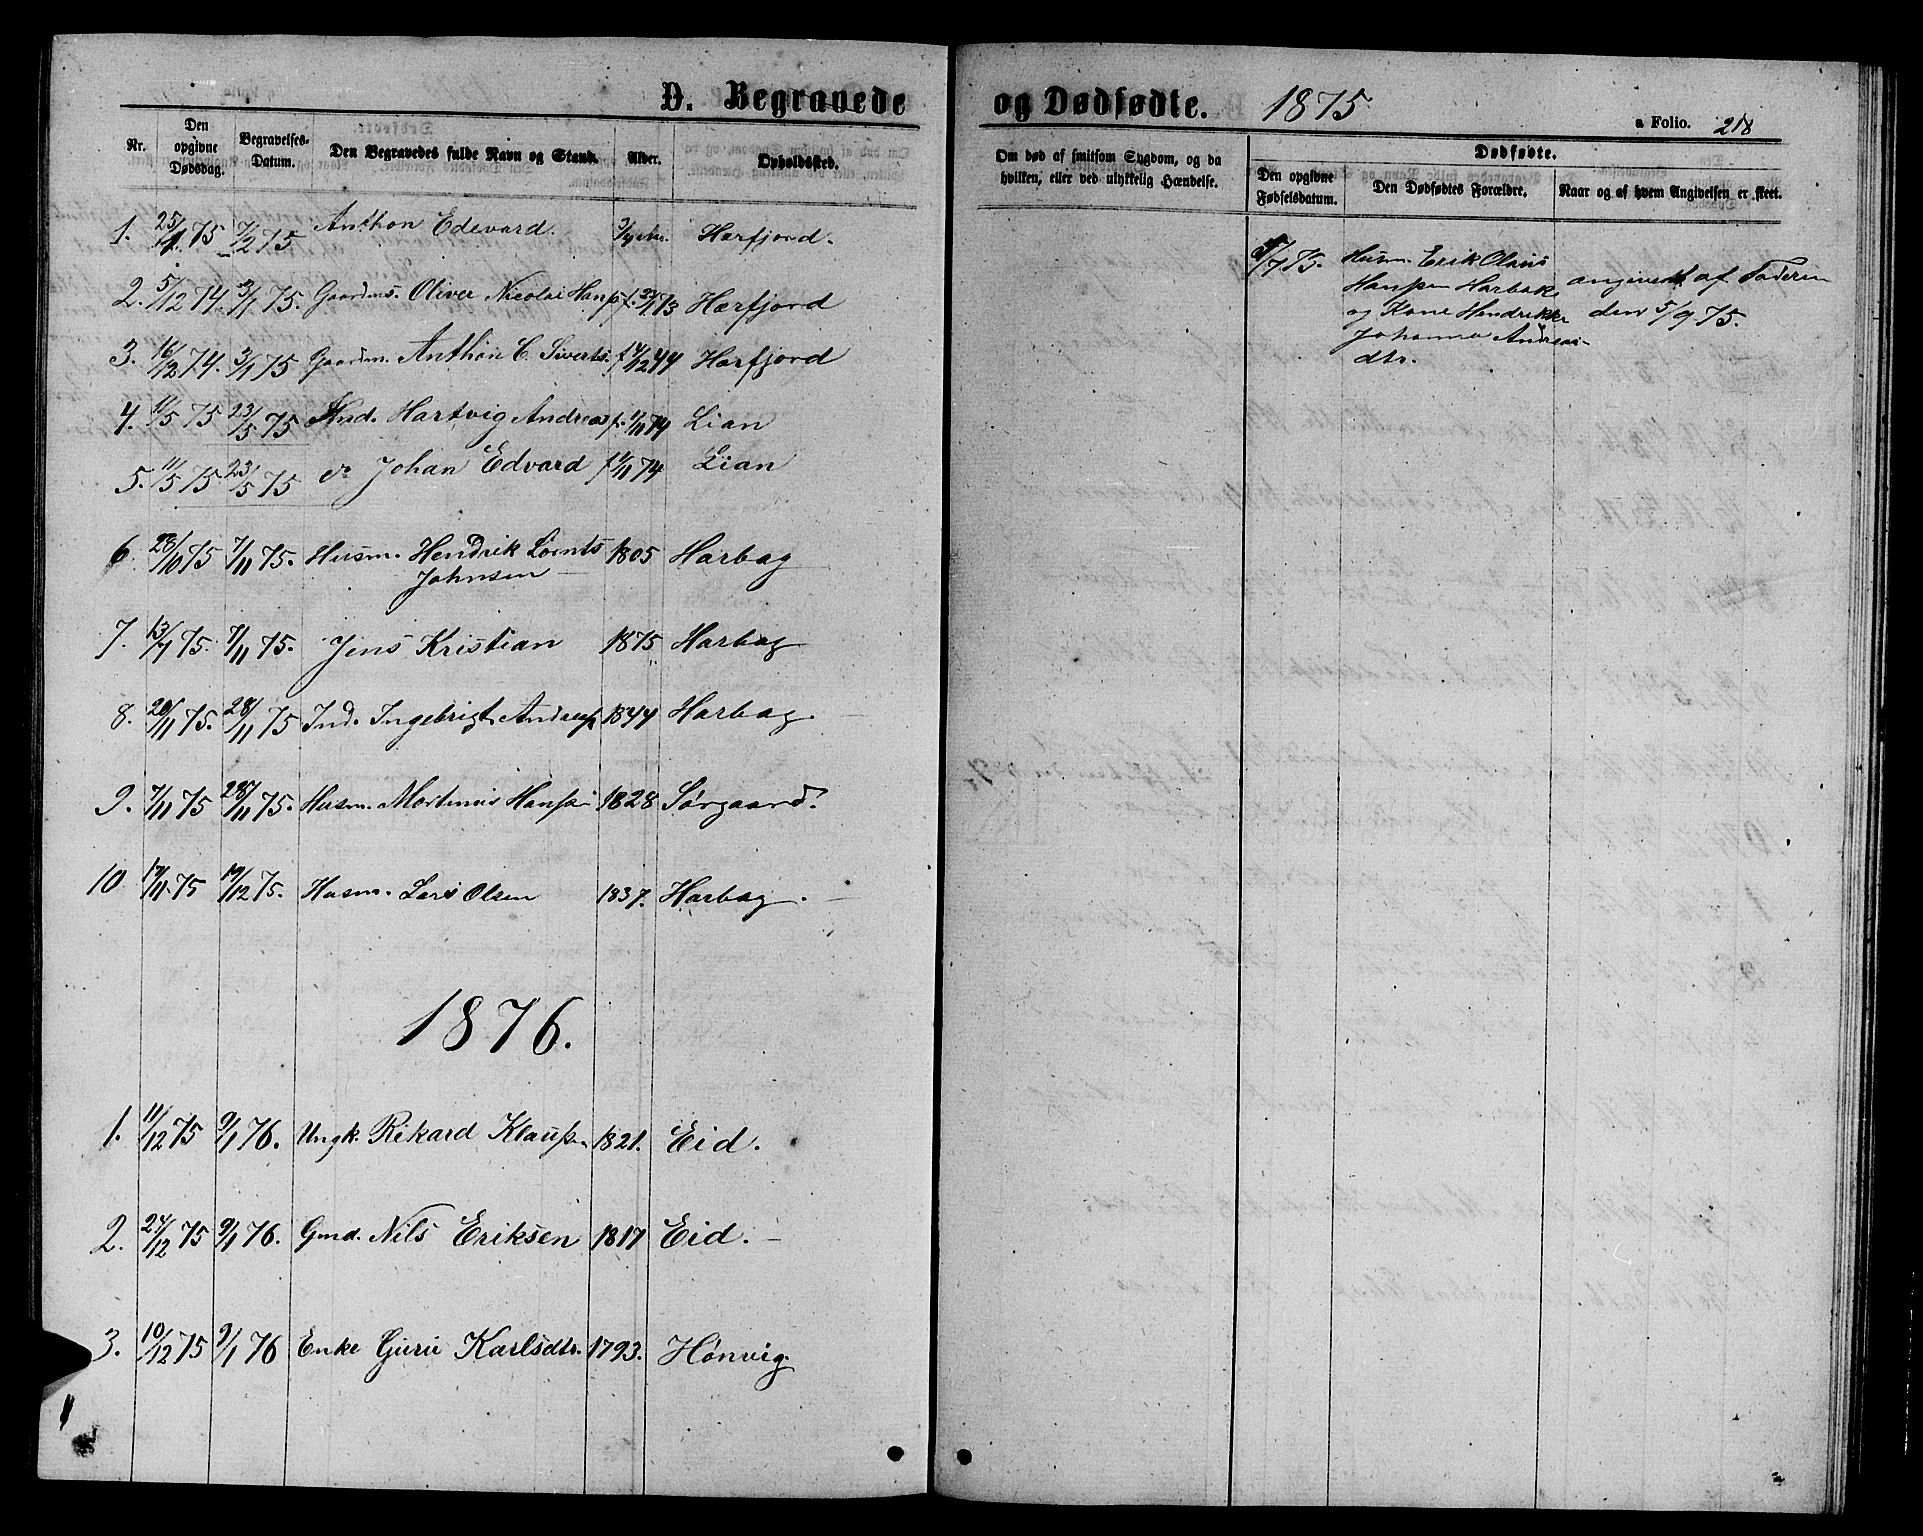 D. Begravede og Dødfødte. 1875
a Folio. 218
Nr. Den opgivne Dødsdag. Begravelses-Datum. Den Begravedes fulde Navn og Stand. Alder. Opholdssted.
Om død af smitsom Sygdom, og da hvilken, eller ved ulykkelig Hændelse.
Dødfødte.
Den opgivne Fødselsdatum. Den Dødfødtes Forældre. Naar og af hvem Angivelsen er skeet.
1. 25/1 75 7/2 75 Anthon Edevard. Harfjord.
2. 5/12 74. 3/1 75. Gaardms. Oliver Nicolai Hanss. Harfjord
3. 16/12 74. 3/1 75 Gaardm. Anthon C. Siverts. f 4/12 44 Harfjord
4. 11/5 75 23/5 75 Ind. Hartvig Andreas f. 1/11 74 Lian
5. 11/5 75 23/5 75 do Johan Edvard f 1/11 74 Lian
6. 28/10 75 7/11 75. Husm. Hendrik Lornts
Johnsen 1805 Harbag
7. 13/7 75. 7/11 75. Jens Kristian 1875 Harbag
8. 20/11 75. 28/11 75 Ind. Ingebrigt Andreass 1844 Harbag.
9. 7/11 75 28/11 75. Husm. Mortinus Hanss 1828 Sørgaard.
10 17/11 75 19/12 75. Husm. Lars Olsen 1837. Harbag.
1876.
1. 11/12 75 9/1 76. Ungk. Rikard Klaussn 1821. Eid.
2. 24/12 75 9/1 76. Gmd. Nils Eriksen 1817 Eid.
3. 10/12 75 9/1 76 Enke Guru Karlsdtr. 1793. Hønvig.
Husm. Erik Olaus
Hanssen Harbak
og Kone Hendrikke
Johanna Andreas-
dtr.
angivet af Faderen
den 5/9 75.